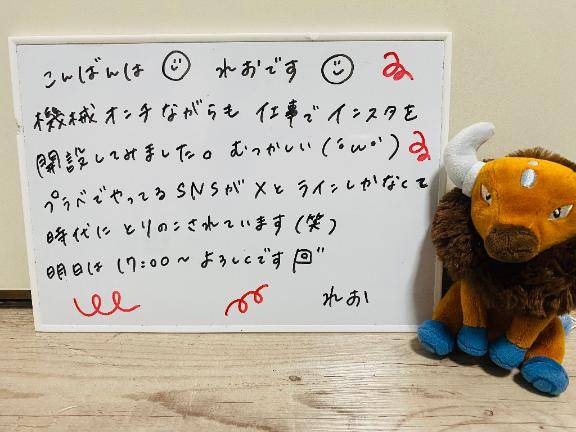 こんばんは☺ れおです☺
機械オンチながらも 仕事でインスタを
開設してみました。むつかしい(´ω`)
プラベでやってるSNSがXとラインしかなくて
時代にとりのこされています(笑)
明日は17:00〜よろしくです回"
れお